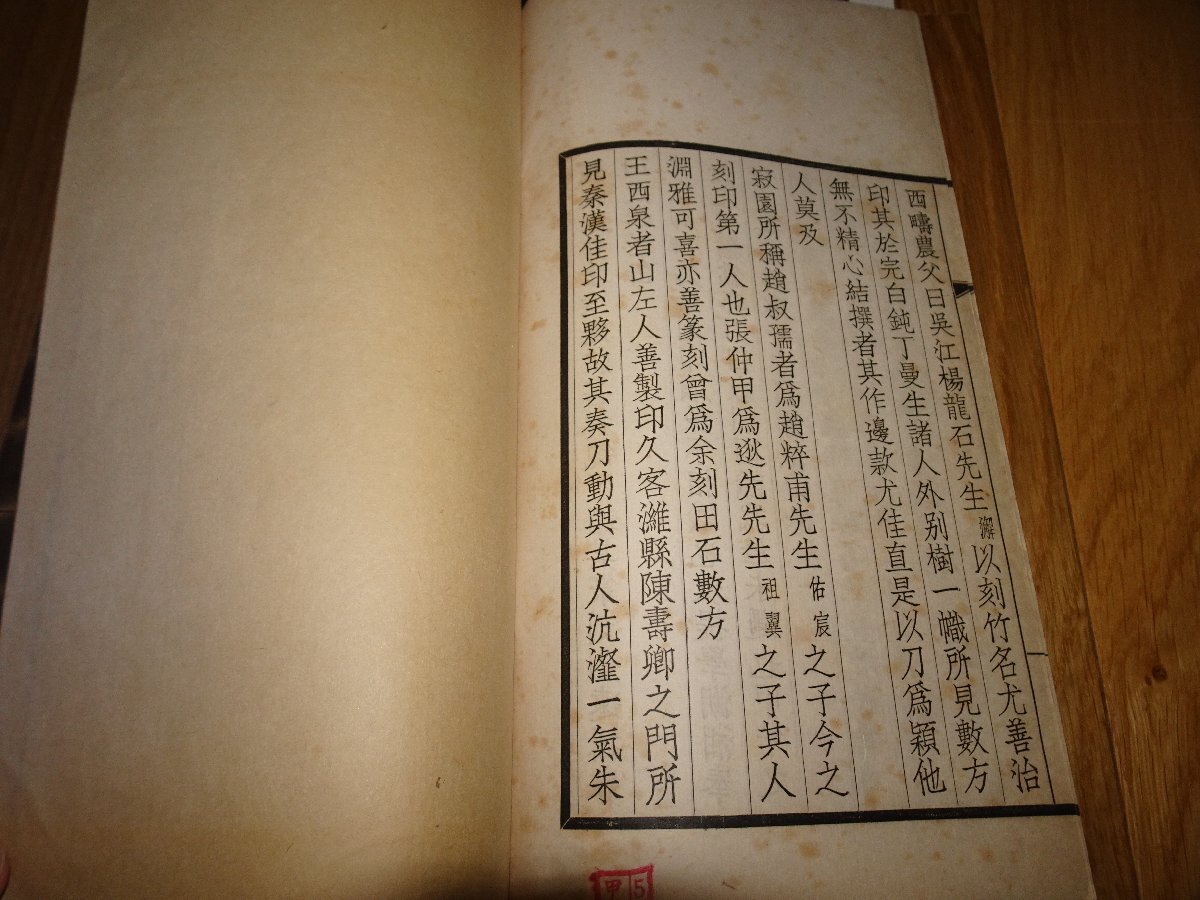 西疇農父曰吳江楊龍石先生澥以刻竹名尤善治
印其於完白鈍丁曼生諸人外別樹一幟所見數方
無不精心結撰者其作邊款尤佳直是以刀爲穎他
人莫及
寂園所稱趙叔孺者爲趙粹甫先生佑宸之子今之
刻印第一人也張仲甲爲逖先先生祖翼之子其人
淵雅可喜亦善篆刻曾爲余刻田石數方
王西泉者山左人善製印久客濰縣陳壽卿之門所
見秦漢佳印至夥故其奏刀動與古人沆瀣一氣朱
甲5